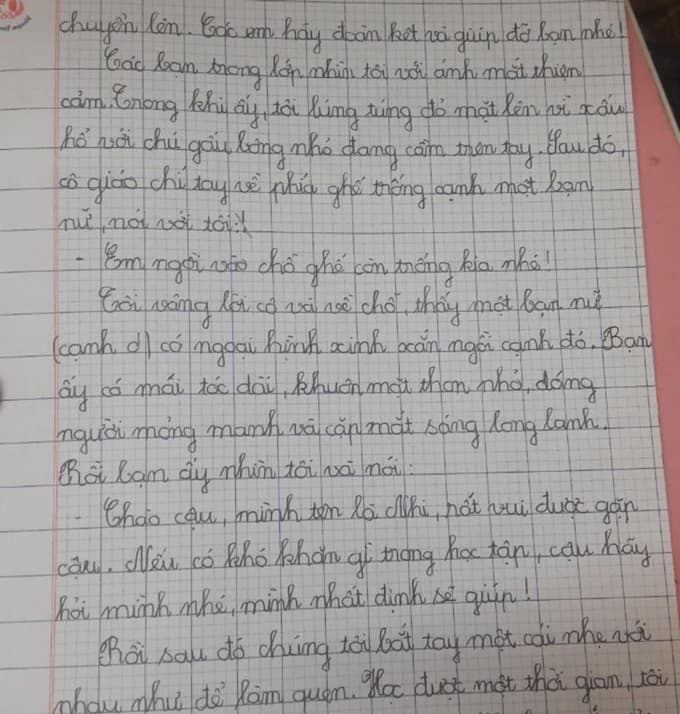 chuyện lớn. Các em hãy đoàn kết và giúp đỡ bạn nhé!
Các bạn trong lớp nhìn tôi với ánh mắt thiện
cảm. Trong khi ấy, tôi lúng túng đỏ mặt lên vì xấu
hổ với chú gấu bông nhỏ đang cầm trên tay. Sau đó,
cô giáo chỉ tay về phía ghế trống cạnh một bạn
nữ, nói với tôi:
- Em ngồi vào chỗ ghế còn trống kia nhé!
Tôi vâng lời cô và về chỗ, thấy một bạn nữ
(cạnh d) có ngoại hình xinh xắn ngồi cạnh đó. Bạn
ấy có mái tóc dài, khuôn mặt thon nhỏ, dáng
người mỏng manh và cặp mắt sáng long lanh.
Rồi bạn ấy nhìn tôi và nói:
- Chào cậu, mình tên là Nhi, rất vui được gặp
cậu. Nếu có khó khăn gì trong học tập, cậu hãy
hỏi mình nhé, mình nhất định sẽ giúp!
Rồi sau đó chúng tôi bắt tay một cái nhẹ với
nhau như để làm quen. Học được một thời gian, tôi